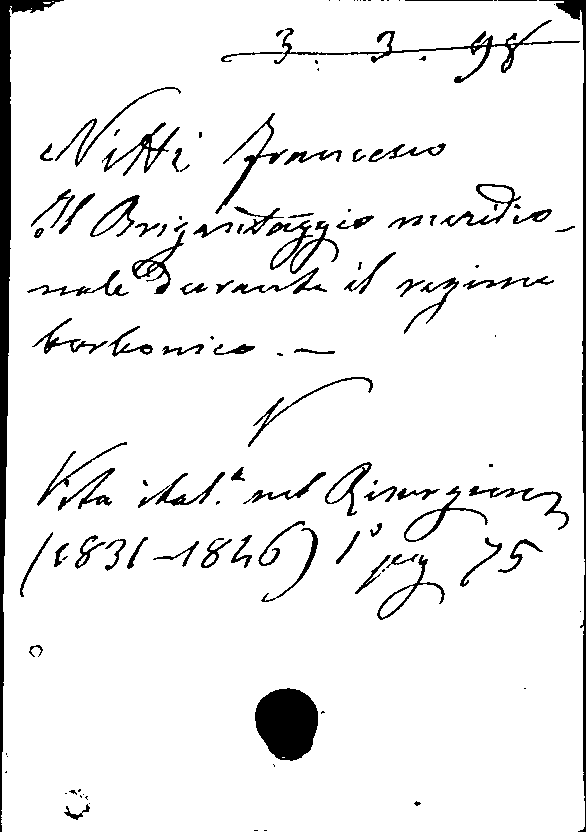 3. 3. 98
Nitti Francesco
Il Brigantaggio meridio-
nale durante il regime
borbonico. —
V
Vita ital.a nel Risorgim
(1831-1846) 1° pag 75